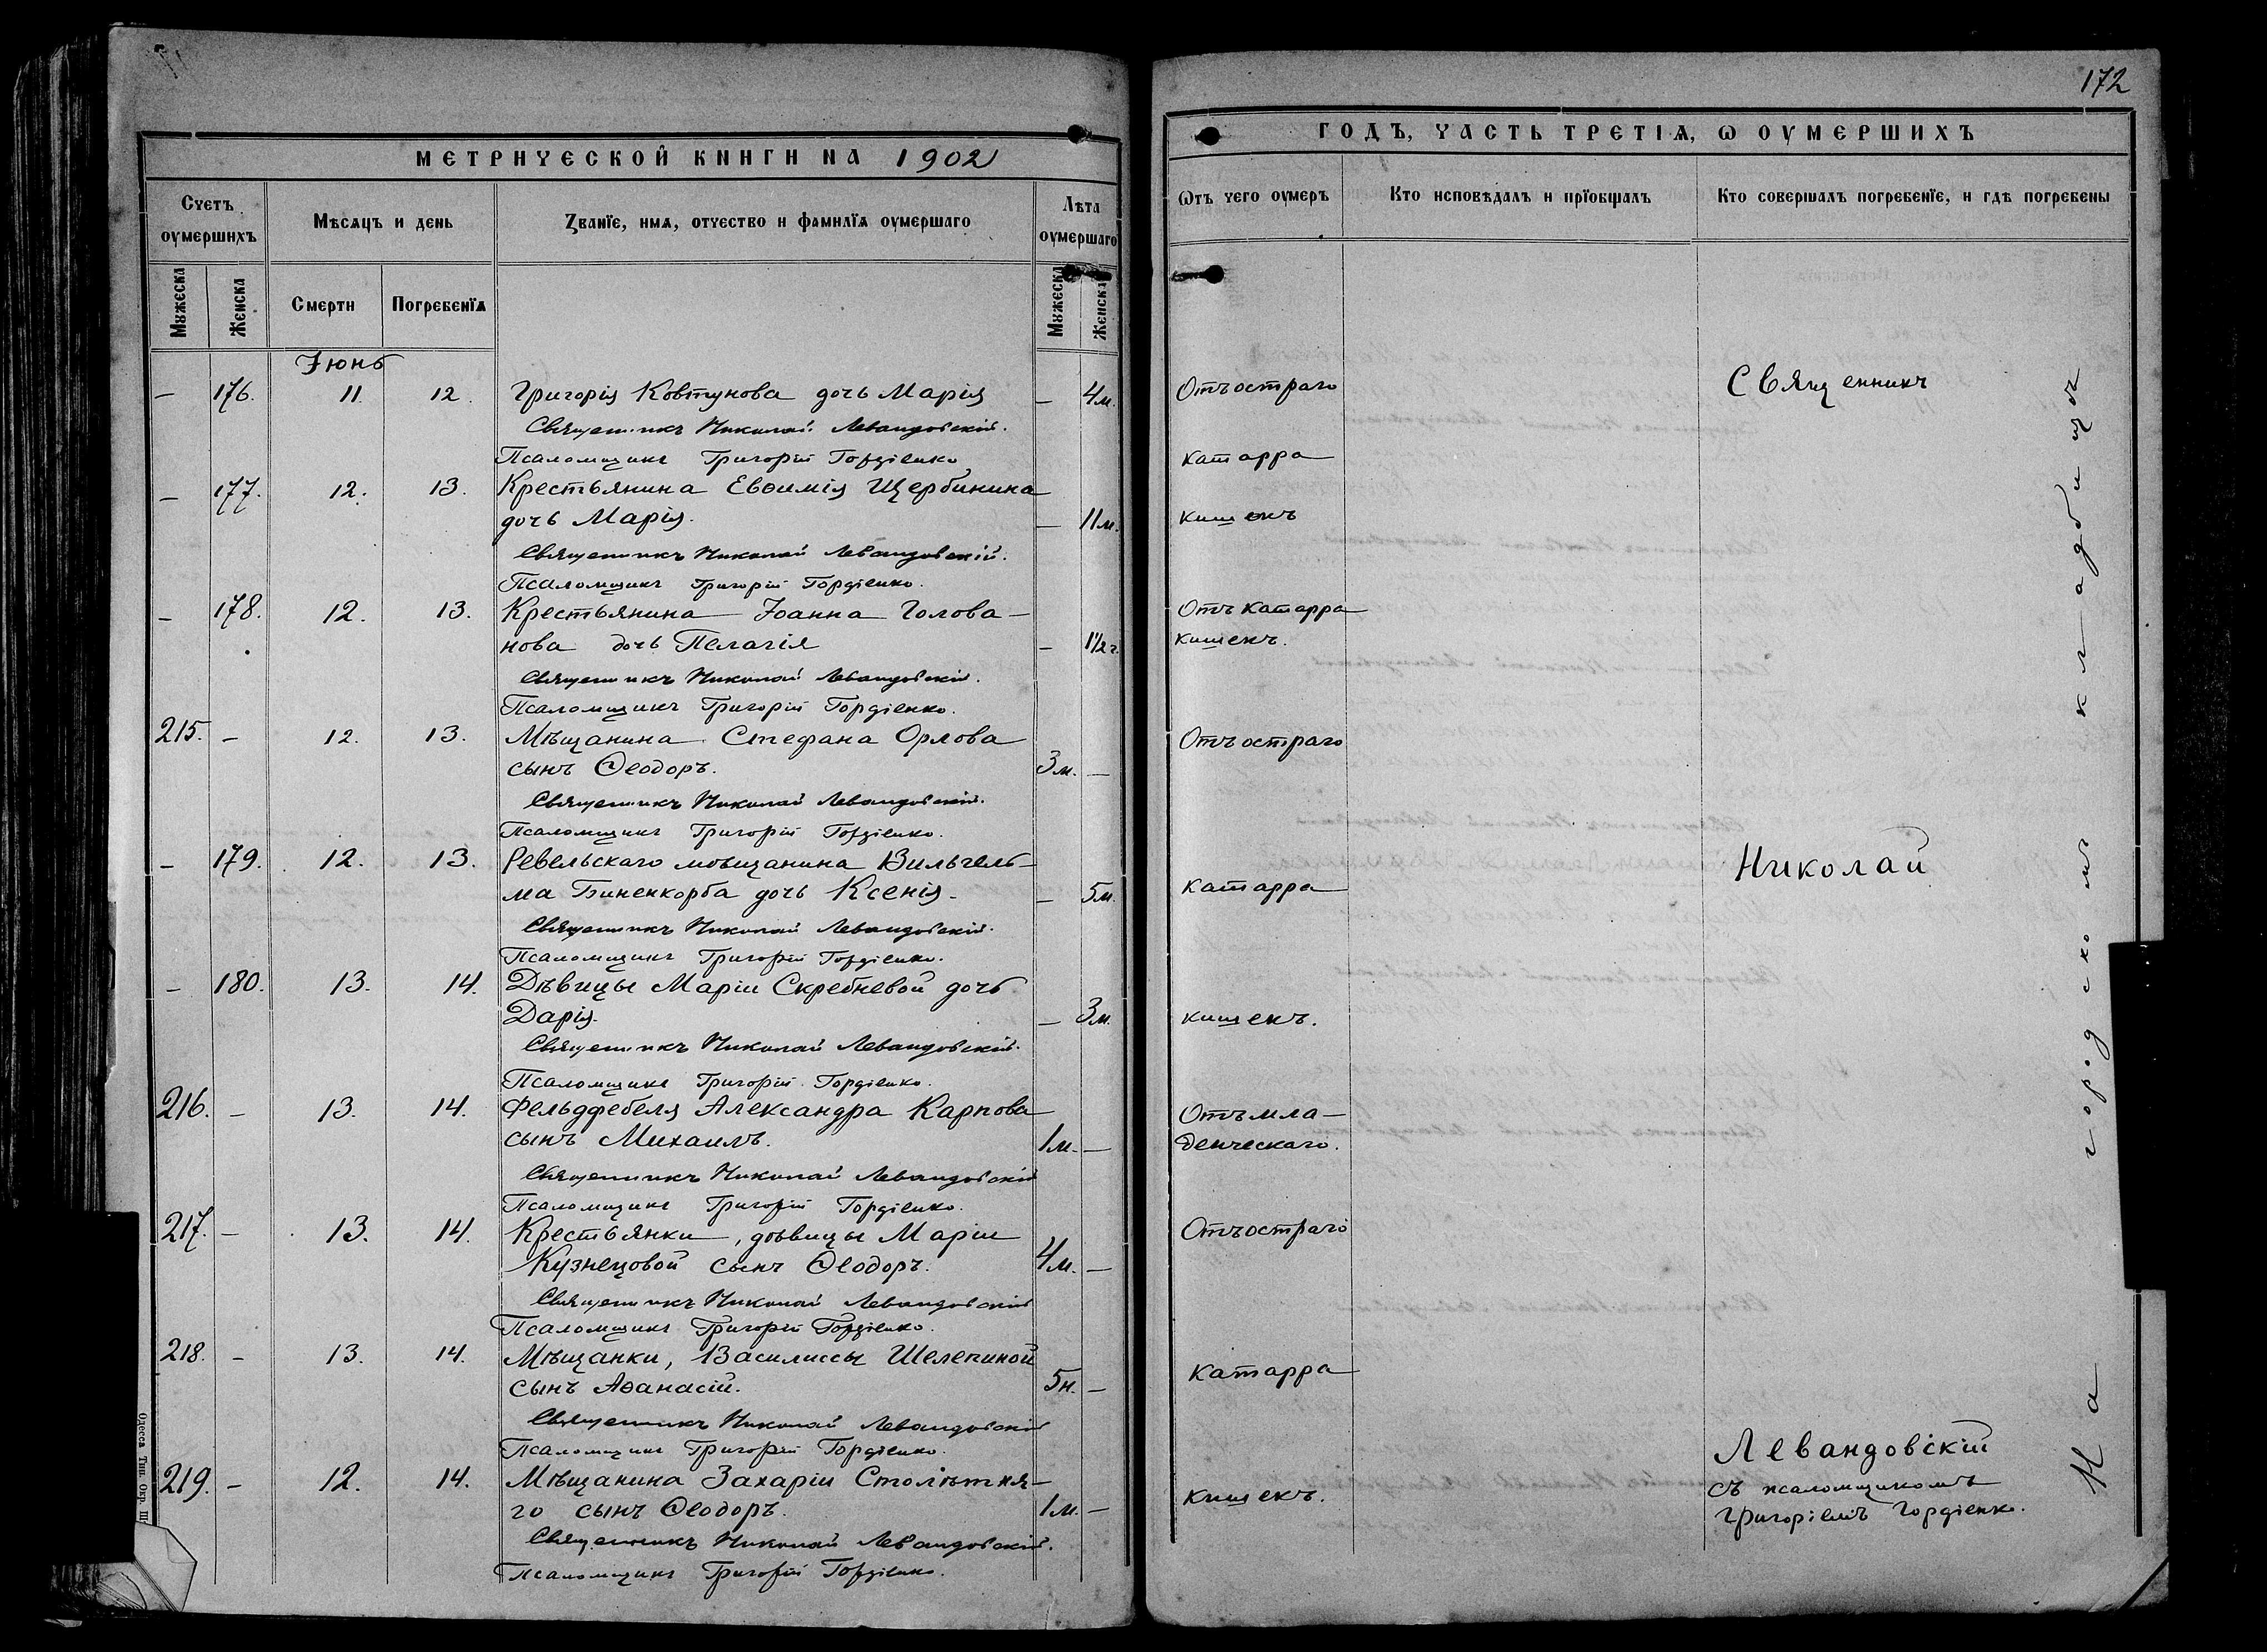 172
МЕТРИЧЕСКОЙ КНИГИ НА 1902
ГОДЪ, ЧАСТЬ ТРЕТІѦ, Ѡ ОУМЕРШИХЪ
Счетъ оумершихъ
Мѣсѧцъ и день
Званїе, имѧ, отчество и фамилїѧ оумершаго
Лѣта оумершаго
Ѿтъ чего оумеръ
Кто исповѣдалъ и прїобщалъ
Кто совершалъ погребенїе, и гдѣ погребены
Мꙋжеска
Женска
Смерти
Погребенїѧ
Мꙋжеска
Женска
Іюнь
— 176. 11. 12. Григорія Ковтунова дочь Марія — 4м. Отъ остраго
Священникъ Николай Левандовскій.
Псаломщикъ Григорій Гордіенко
катарра
— 177. 12. 13. Крестьянина Евѳимія Щербинина
дочь Марія. — 11м. кишекъ
Священникъ Николай Левандовскій.
Псаломщикъ Григорій Гордіенко.
— 178. 12. 13. Крестьянина Іоанна Голова-
нова дочь Пелагія — 1½ г.
Отъ катарра
кишекъ.
Священникъ Николай Левандовскій.
Псаломщикъ Григорій Гордіенко.
215. — 12. 13. Мѣщанина Стефана Орлова
сынъ Ѳеодоръ. 3м. —
Отъ остраго
Священникъ Николай Левандовскій.
Псаломщикъ Григорій Гордіенко.
— 179. 12. 13. Ревельскаго мѣщанина Вильгель-
ма Биненкорба дочь Ксенія. — 5м. катарра
Священникъ Николай Левандовскій.
Псаломщикъ Григорій Гордіенко.
— 180. 13. 14. Дѣвицы Маріи Скребневой дочь
Дарія. — 3м. кишекъ.
Священникъ Николай Левандовскій.
Псаломщикъ Григорій Гордіенко.
216. — 13. 14. Фельдфебеля Александра Карпова
сынъ Михаилъ. 1м. —
Отъ мла-
денческаго.
Священникъ Николай Левандовскій
Псаломщикъ Григорій Гордіенко.
217. — 13. 14. Крестьянки, дѣвицы Маріи
Кузнецовой сынъ Ѳеодоръ. 4м. —
Отъ остраго
Священникъ Николай Левандовскій
Псаломщикъ Григорій Гордіенко.
218. — 13. 14. Мѣщанки, Василиссы Шелепиной
сынъ Аѳанасій. 5н. —
катарра
Священникъ Николай Левандовскій
Псаломщикъ Григорій Гордіенко.
219. — 12. 14. Мѣщанина Захаріи Столѣтня-
го сынъ Ѳеодоръ. 1м. —
кишекъ.
Священникъ Николай Левандовскій.
Псаломщикъ Григорій Гордіенко.
Священникъ
Николай
Левандовскій
съ псаломщикомъ
Григоріемъ Гордіенко.
На городскомъ кладбищѣ
Одесса Тип. Окр. Ш